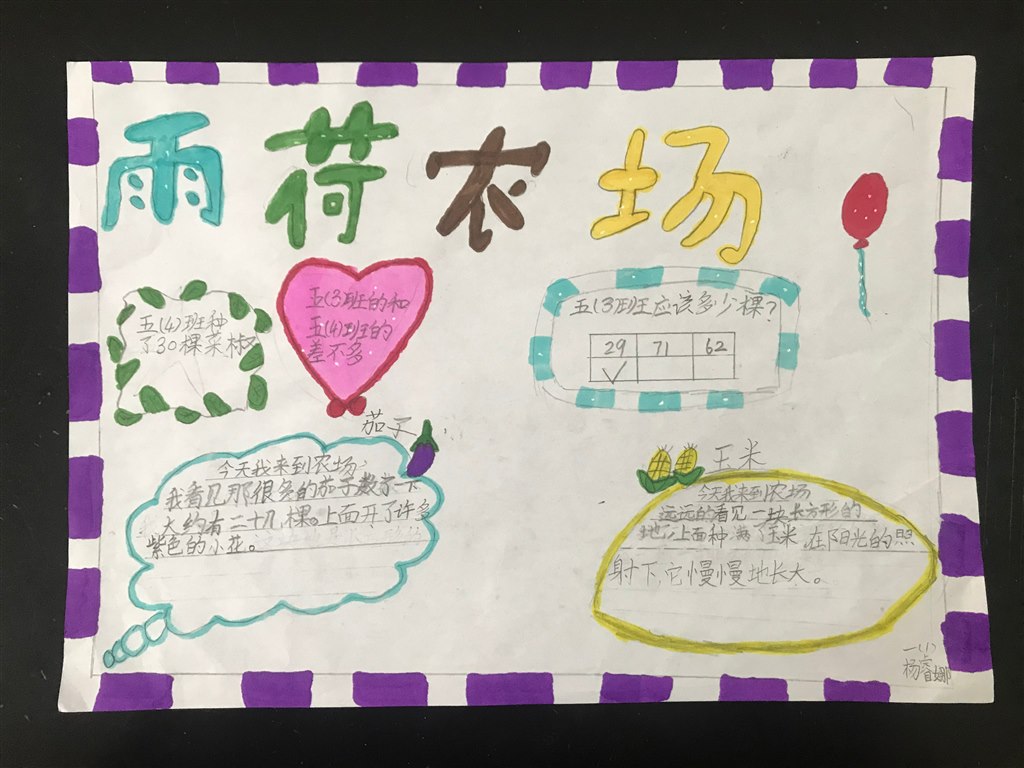 雨荷农场
五(4)班种
了30棵菜椒
五(3)班的和
五(4)班的
差不多
五(3)班应该多少棵?
29 71 62
✓
茄子
今天我来到农场,
我看见那很多的茄子数了一下
大约有二十几棵。上面开了许多
紫色的小花。
玉米
今天我来到农场
远远的看见一块长方形的
地,上面种满了玉米,在阳光的照
射下,它慢慢地长大。
一(1)
杨睿娜